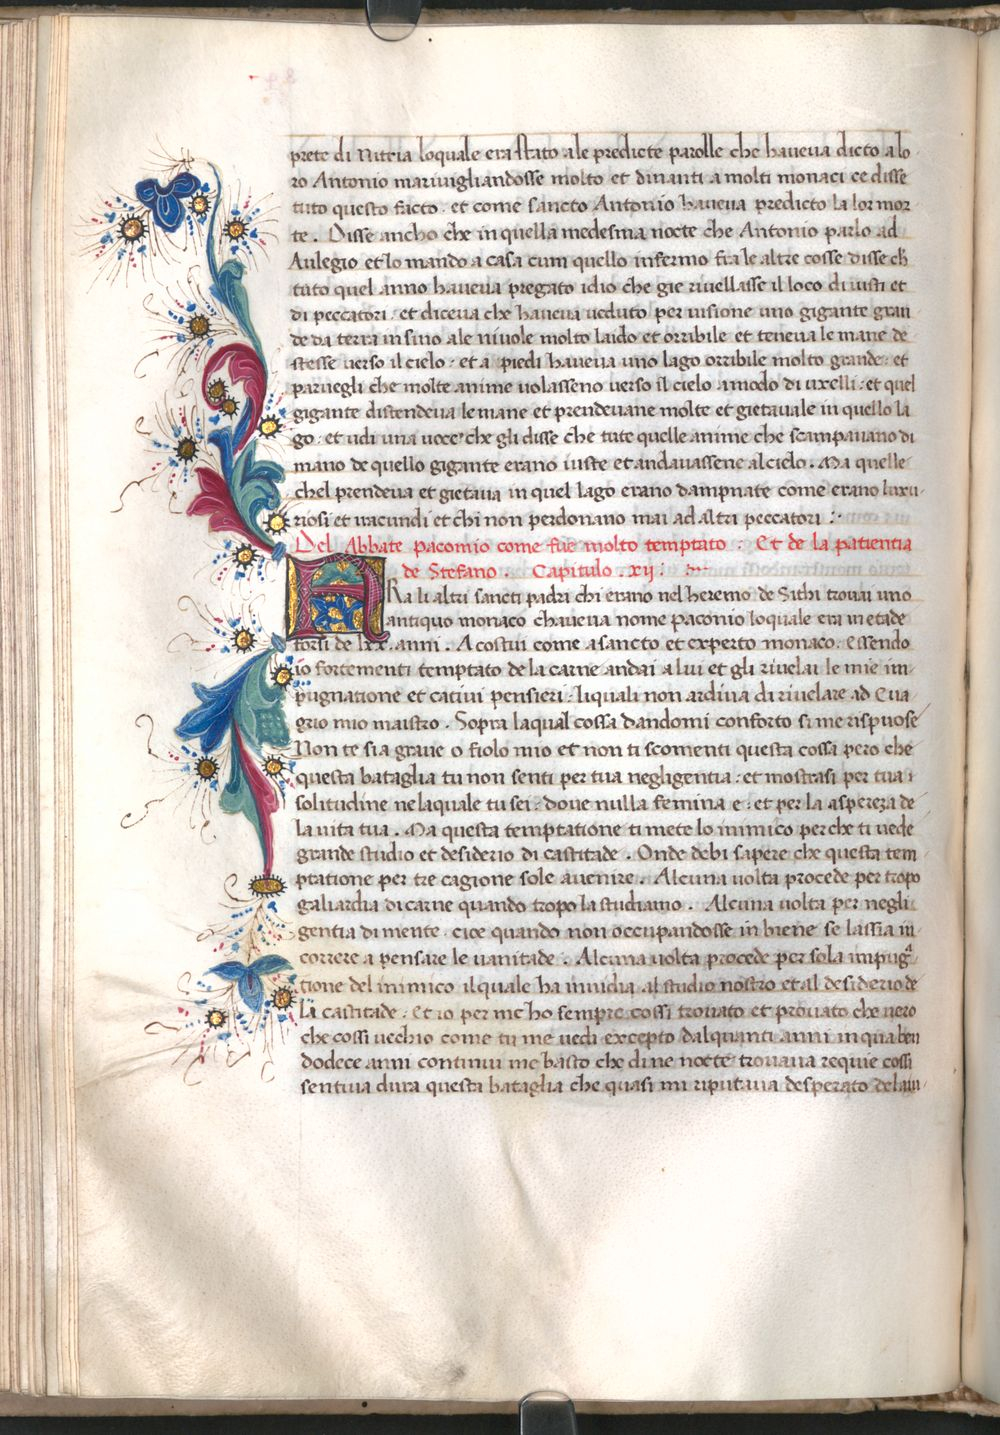 prete di Nitria loquale era stato ale predicte parolle che haveva dicto a lo
ro Antonio marivigliandosse molto et dinanti a molti monaci ce disse
tuto questo facto . et come sancto Antonio haveva predicto la lor mor
te . Disse ancho che in quella medesma nocte che Antonio parlo ad
Aulegio et lo mando a casa cum quello infermo fra le altre cosse disse ch
tuto quel anno haveva pregato idio che gie rivellasse il loco di iusti et
di peccatori : et diceva che haveva veduto per visione uno gigante gran
de da terra in sino ale nivole molto laido et orribile et teneva le mane de
stesse verso il cielo : et a piedi haveva uno lago orribile molto grande : et
parvegli che molte anime volasseno verso il cielo a modo di uxelli : et quel
gigante distendeva le mane et prendevane molte et gietavale in quello la
go : et udi una voce che gli disse che tute quelle anime che scampavano di
mano de quello gigante erano iuste et andavassene al cielo . Ma quelle
chel prendeva et gietava in quel lago erano dampnate come erano luxu
riosi et iracundi et chi non perdonano mai ad altri peccatori :
Del Abbate Pacomio come fue molto temptato . Et de la patientia
de Stefano . Capitulo .xij:
FRa li altri sancti padri chi erano nel heremo de Sithi trovai uno
antiquo monaco chaveva nome paconio loquale era in etade
forsi de lxx. anni . A costui come a sancto et experto monaco . essendo
io fortementi temptato de la carne andai a lui et gli rivelai le mie im
pugnatione et cativi pensieri : liquali non ardiva di rivelare ad Eva
grio mio maistro . Sopra laqual cossa dandomi conforto si me rispuose
Non te sia grave o fiolo mio et non ti scomenti questa cossa pero che
questa bataglia tu non senti per tua negligentia : et mostrasi per tua
solitudine ne laquale tu sei : dove nulla femina e : et per la aspereza de
la vita tua . Ma questa temptatione ti mete lo inimico perche ti vede
grande studio et desiderio di castitade . Onde debi sapere che questa tem
ptatione per tre cagione sole avenire . Alcuna volta procede per tropo
galiardia di carne quando tropo la studiamo . Alcuna volta per negli
gentia di mente . cioe quando non occupandosse in biene se lassia in
correre a pensare le vanitade . Alcuna volta procede per sola impugᵃ
tione del inimico il quale ha invidia al studio nostro et al desiderio de
la castitade : et io per me ho sempre cossi trovato et provato che vero
che cossi vecchio come tu me vedi excepto dalquanti anni in qua ben
dodece anni continui me basto che di ne nocte trovava requie cossi
sentiva dura questa bataglia che quasi mi riputava desperato de